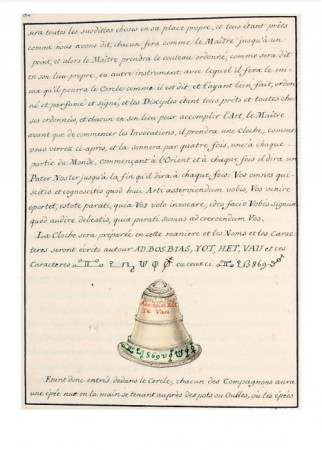 sera toutes les susdittes choses en sa place propre, et tous étant prêts
comme nous avons dit, chacun fera comme le Maître jusqu'à un
point, et alors le Maître prendra le couteau ordonné, comme sera dit
en son lieu propre, ou autre instrument avec lequel il fera le mi-
eux qu'il pourra le Cercle comme il est dit; et l'ayant bien fait, ordon-
né et parfumé et signé, et les Disciples étant tous prêts et toutes cho-
ses ordonnées, et chacun en son lieu pour accomplir l'Art, le Maître
avant que de commencer les Invocations, il prendra une Cloche, comme
vous verrez ci-après, et la sonnera par quatre fois, une à chaque
partie du Monde, commençant à l'Orient et à chaque fois il dira un
Pater Noster jusqu'à la fin qu'il dira à chaque fois: Vos omnes qui-
sitio et cognositis quod huic Arti asserviendum vobis, Vos venire
oportet, estote parati, quia Vos volo invocare, ideo facio Vobis Signum
quod audire debeatis, quia parati sumus ad coercendum Vos.
La Cloche sera préparée en cette manière et les Noms et les Carac-
teres seront écrits autour AD, BOS, BIAS, YOT, HET, VAU et ces
Caracteres ou ceux ci
Te Vau
Etant donc entrés dedans le Cercle, chacun des Compagnons aura
une épée nue en la main se tenant auprès des pots ou Oulles, où les épées